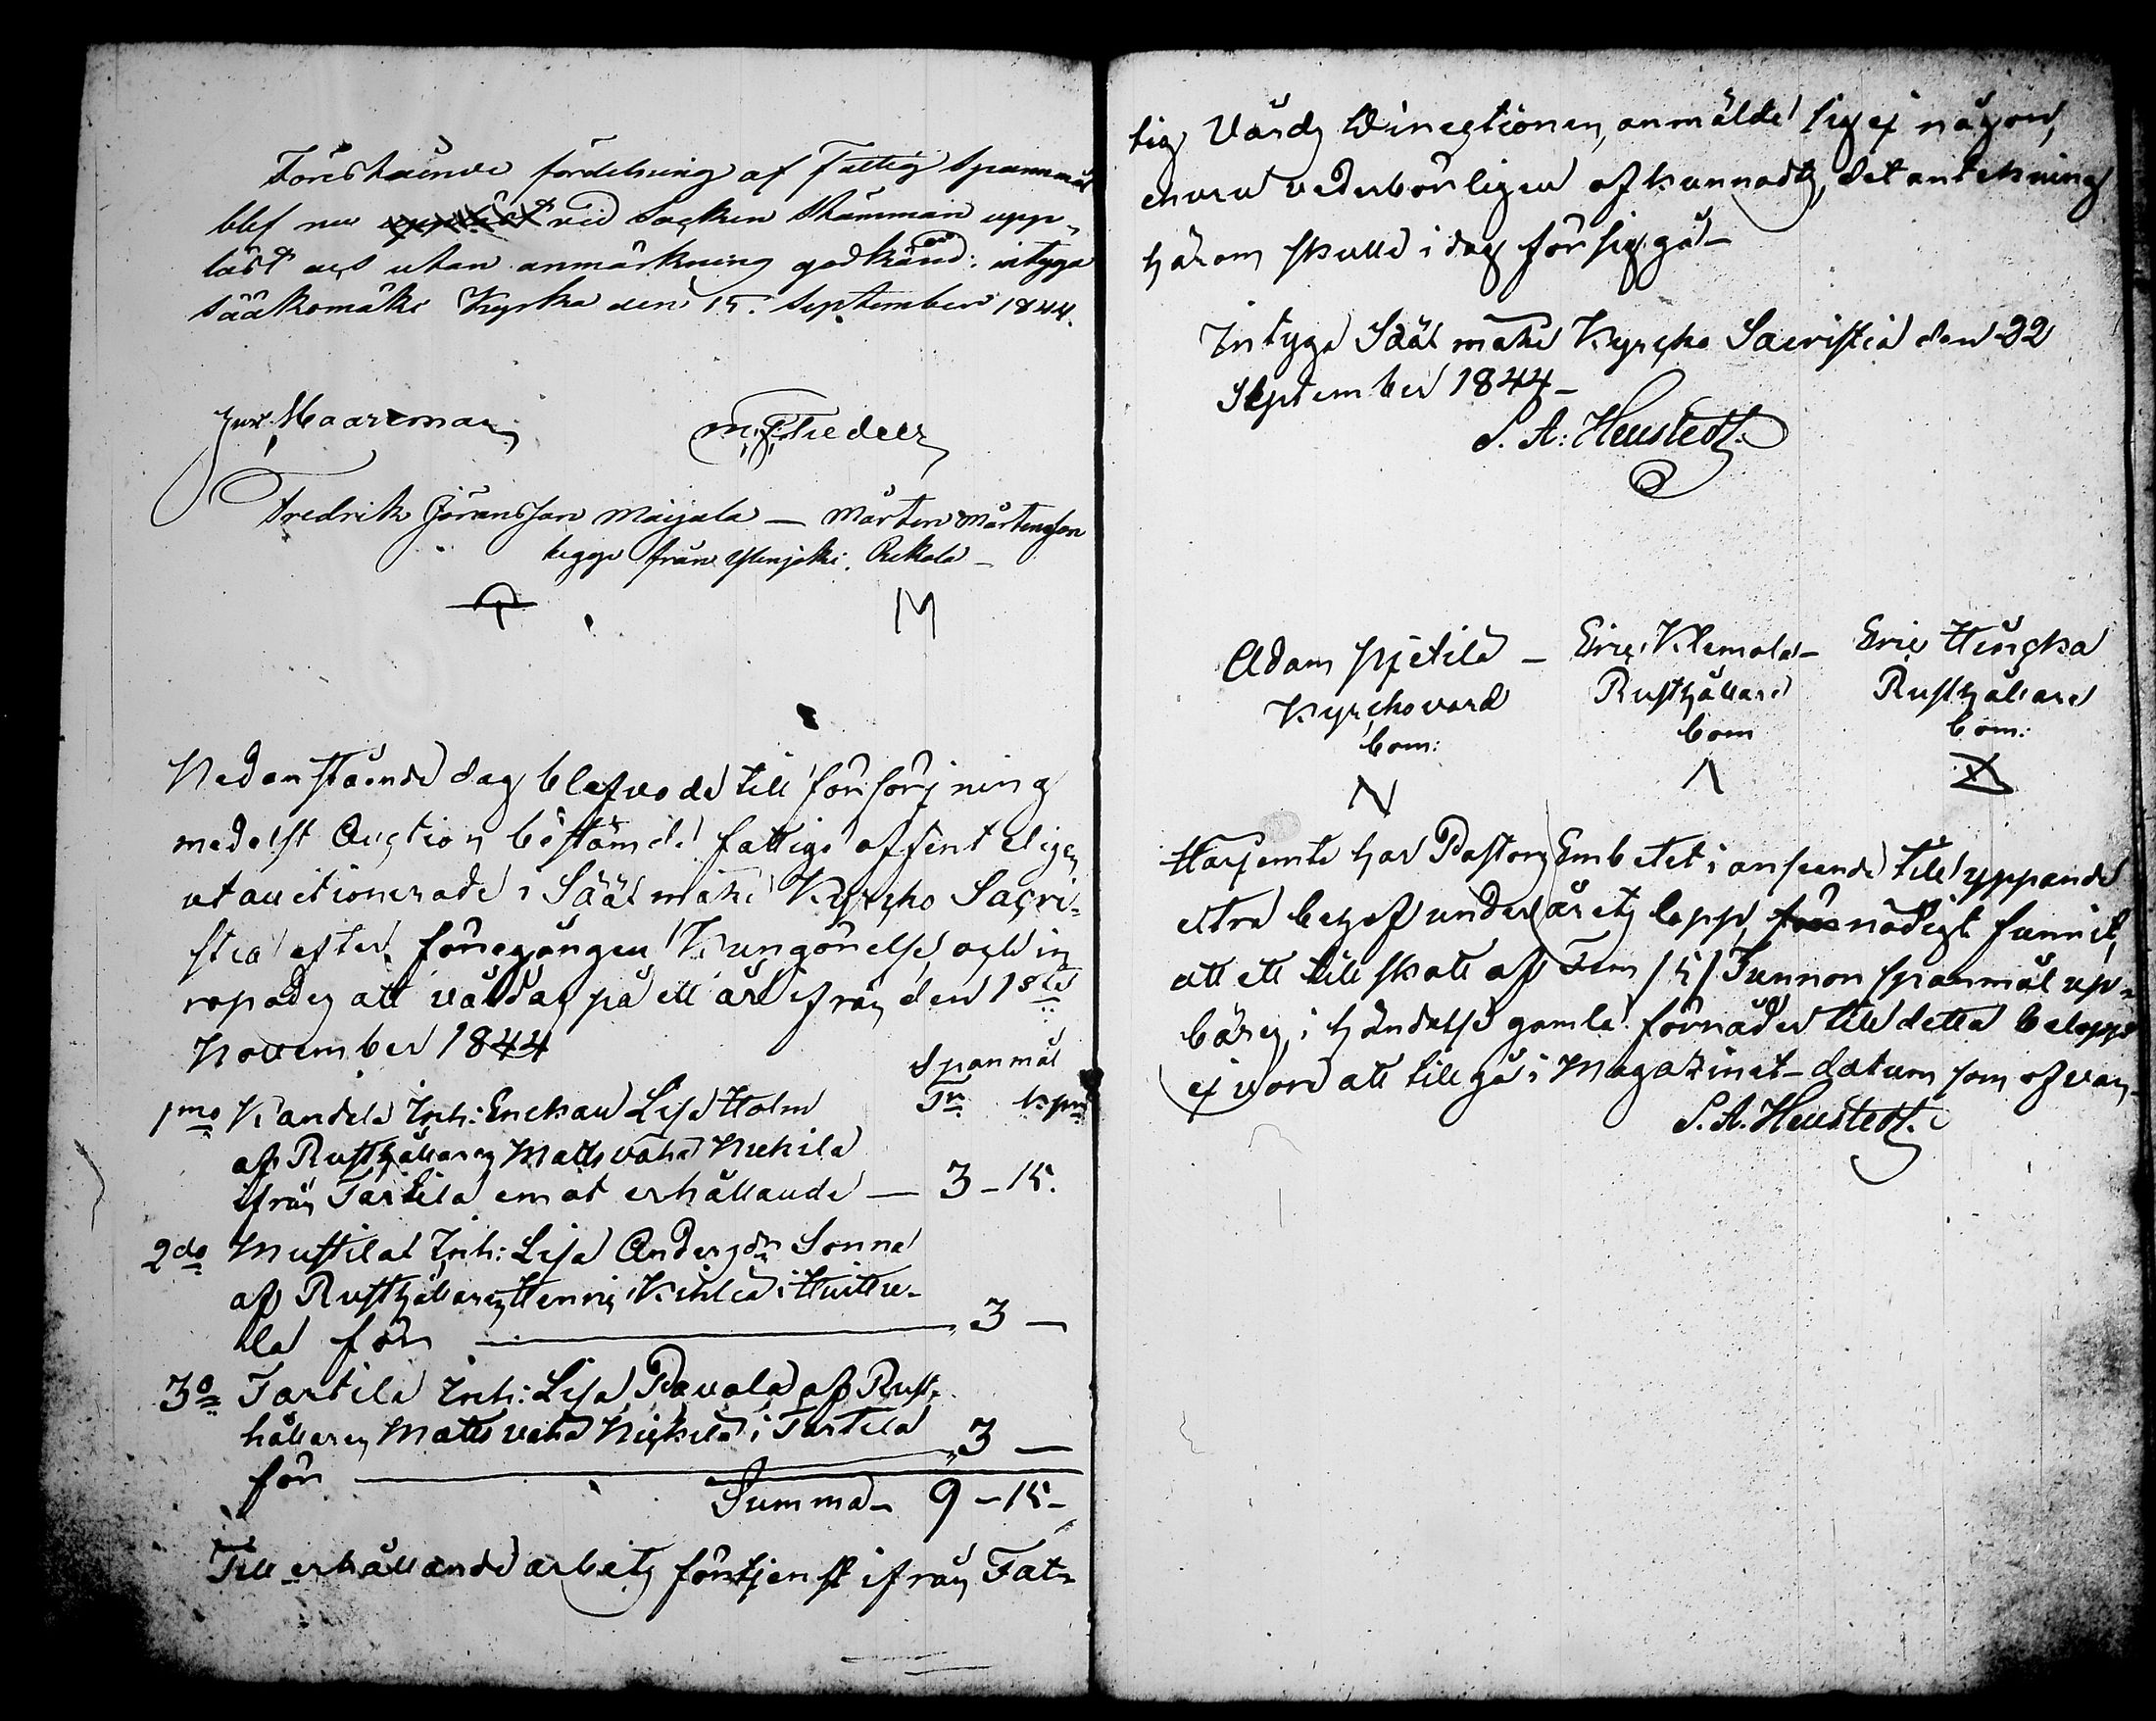 Förestående fördelning af Fattig Spannmål
blef nu upplöst vid Socken Stämman upp-
läst och utan anmärkning godkänd: intyga
Sääksmäki Kyrka den 15. September 1844.
Haartman
Fredrik Jöransson Maijala — Mårten Mårtensson
begge från Ylenjoki, Rekola —
M
Nedanstående dag blefvo de till försörjning
medelst Auction bestämde fattige offenteligen
utauctionerade i Sääxmäki Kyrcko Sacri-
stia efter föregången Kungörelse och in-
ropades att vårdas på ett år ifrån den 1ste
November 1844
Spanmål
Tnr kpr
1mo Kandela Inh: Enckan Lisa Holm
af Rusthållaren Matts Vähä Nickila
ifrån Tartila emot erhållande — 3 – 15.
2do Muttilat Inh: Lisa Andersdr Sonna
af Rusthållaren Henric i Huittu-
la för — 3 —
3o Tartila Inh: Lisa Pavola af Rust-
hållaren Matts Vähä Nickila i Tartila
för — 3 —
Summa – 9 – 15 –
Till erhållande arbets förtjenst ifrån Fat-
tig Vårds Directionen, anmälde sig ej någon,
churu vederbörligen afkunnadt, det anteckning
härom skulle i dag för sig gå –
Intyga Sääxmäki Kyrcko Sacristia den 22
September 1844 –
S. A: Heustedt.
Adam Spjetila – Eric Klemola – Eric Huscka
Kyrckovärd Rusthållare Rusthållare
bom: bom bom:
N Λ
Härjemte har Pastors Embetet i anseende till yppande
extra behof under årets lopp, för nödigt funnit,
att ett tillskott af Fem /5/ Tunnor spanmål up-
bäres, i händelse gamla förråder till detta belopp
ej vore att tillgå i Magazinet – datum som ofvan –
S. A. Heustedt.